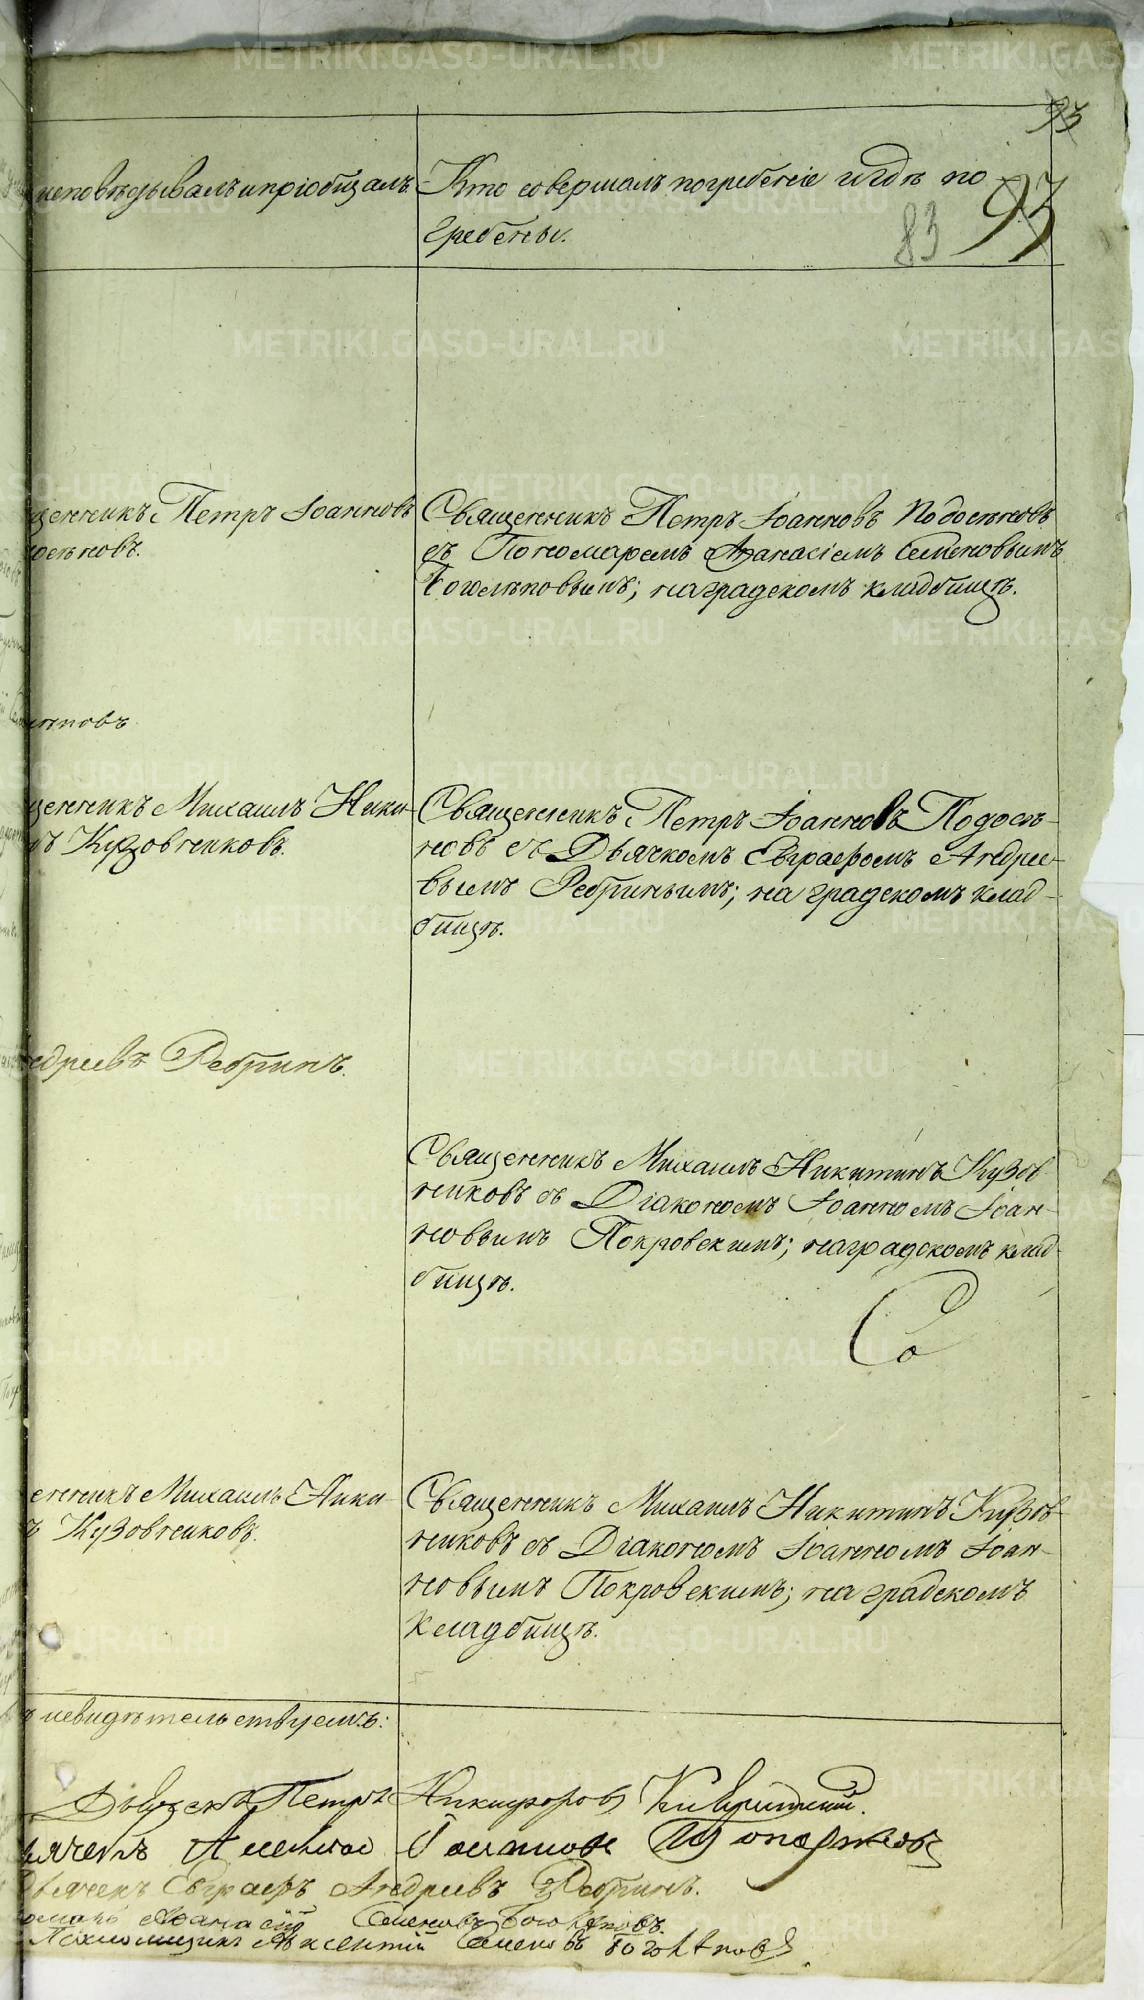 93
исповѣдывалъ и пріобщалъ.
Кто совершалъ погребеніе и гдѣ по-
гребены.
83 93
щенникъ Петръ Іоанновъ
досѣновъ.
Священникъ Петръ Іоанновъ Подосѣновъ
съ Пономаремъ Аѳанасіемъ Семеновымъ
Боголѣповымъ; на градскомъ кладбищѣ.
щенникъ Михаилъ Ники-
нъ Кузовниковъ.
Священникъ Петръ Іоанновъ Подосѣ-
новъ съ Дьячкомъ Евграфомъ Андрее-
вымъ Ребринымъ; на градскомъ клад-
бищѣ.
ндреевъ Ребринъ.
Священникъ Михаилъ Никитинъ Кузов-
никовъ съ Діакономъ Іоанномъ Іоан-
новымъ Покровскимъ; на градскомъ клад-
бищѣ.
Со
енникъ Михаилъ Ники-
ъ Кузовниковъ.
Священникъ Михаилъ Никитинъ Кузов-
никовъ съ Діакономъ Іоанномъ Іоан-
новымъ Покровскимъ; на градскомъ
кладбищѣ.
свидѣтельствуемъ:
Петръ Никифоровъ
Дьячекъ Евграфъ Андреевъ Ребринъ.
Аѳанасій Семеновъ Боголѣповъ.
Аѵксентій Семеновъ Боголѣповъ.
METRIKI.GASO-URAL.RU